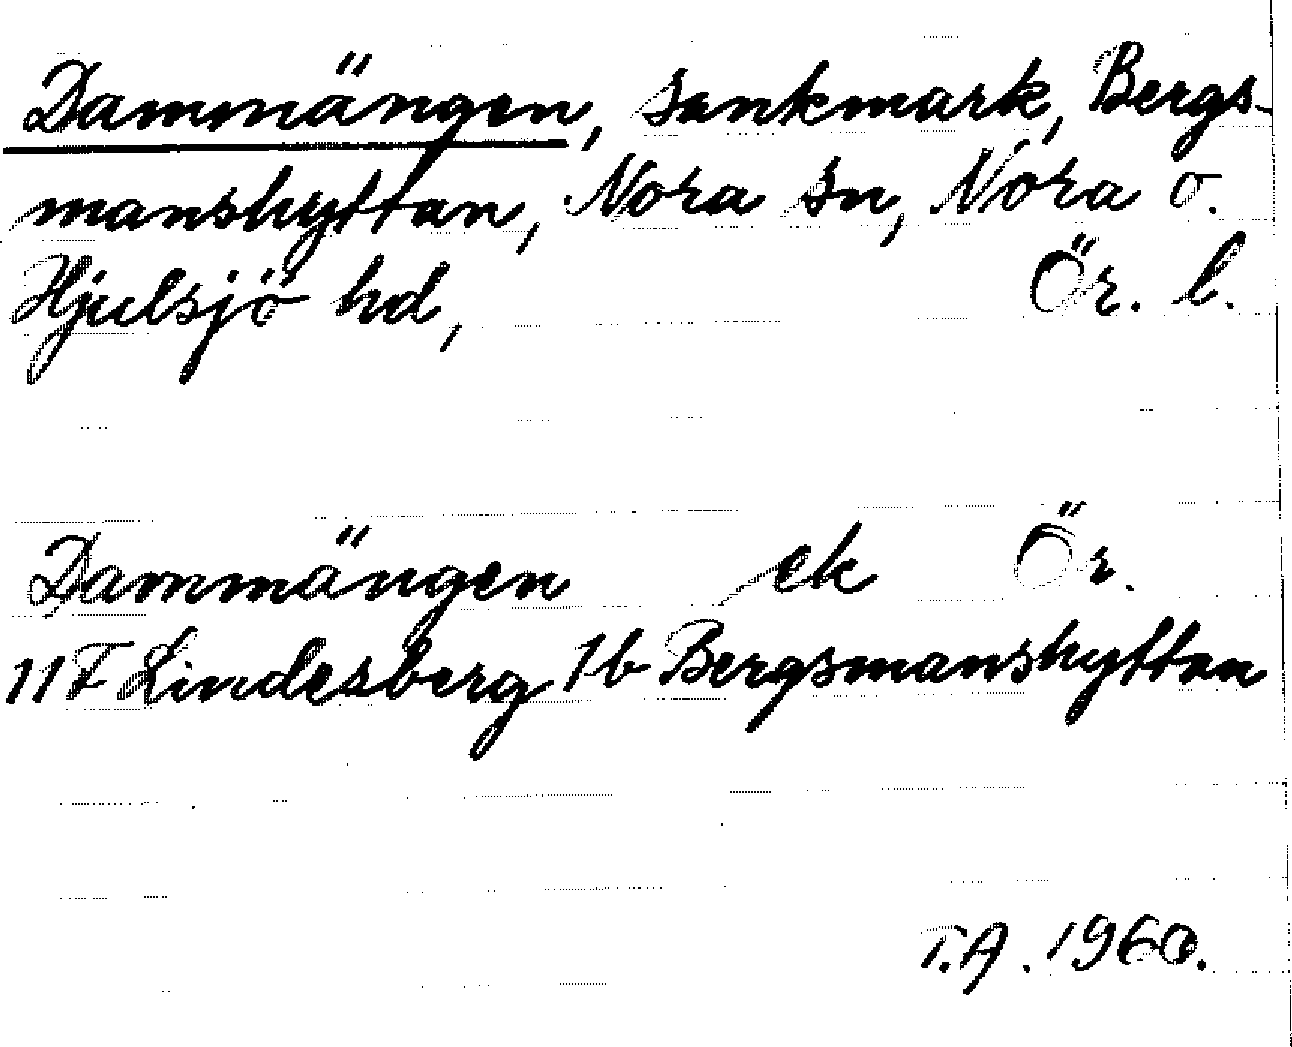 Dammängen, sankmark, Bergs-
manshyttan, Nora sn, Nora o.
Hjulsjö hd, Ör. l.
Dammängen ek Ör.
11F Lindesberg 1b Bergsmanshyttan
T.A. 1960.